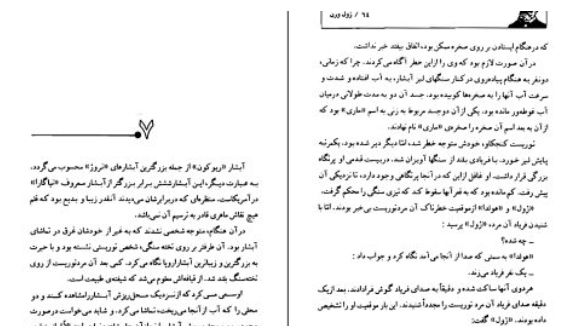 ۶۴ / ژول ورن
که در هنگام ایستادن بر روی صخره ممکن بود، اتفاق بیفتد خبر نداشت.
در آن صورت لازم بود که وی را از این خطر آگاه می‌کردند. چرا که زمانی،
دو نفر به هنگام پیاده‌روی در کنار سنگهای لیز آبشار، به آب افتاده و شدت و
سرعت آب آنها را به صخره‌ها کوبیده بود. جسد آن دو به مدت طولانی در میان
آب غوطه‌ور مانده بود. یکی از آن دو جسد مربوط به زنی به اسم «ماری» بود که
از آن به بعد اسم آن صخره را صخره‌ی «ماری» نام نهادند.
توریست کنجکاو، خودش متوجه خطر شد، امّا دیگر دیر شده بود. یکمرتبه
پایش لیز خورد. با فریادی بلند از سنگها آویزان شد. در بیست قدمی او پرتگاه
بزرگی قرار داشت. او غافل از این که در آنجا پرتگاهی وجود دارد، تا نزدیکی آن
پیش رفت. کم مانده بود که به قعر آنها سقوط کند که تیزی سنگی را محکم گرفت.
«ژول» و «هولدا» از موقعیت خطرناک آن مرد توریست بی‌خبر بودند. امّا با
شنیدن فریاد آن مرد، «ژول» پرسید :
ـ چه شده؟
«هولدا» به سمتی که صدا از آنجا می‌آمد نگاه کرد و جواب داد :
ـ یک نفر فریاد می‌زند.
هر دوی آنها ساکت شده و دقیقاً به صدای فریاد گوش فرا دادند. بعد از یک
دقیقه صدای فریاد آن مرد توریست را مجدداً شنیدند. این بار موقعیت او را تشخیص
داده بودند. «ژول» گفت:
۷
آبشار «ریوکون» از جمله بزرگترین آبشارهای «نروژ» محسوب می‌گردد.
به عبارت دیگر، این آبشار شش برابر بزرگتر از آبشار معروف «نیاگارا»
در آمریکاست. منظره‌ای که در برابرشان می‌دیدند آنقدر زیبا و بدیع بود که قلم
هیچ نقاش ماهری قادر به ترسیم آن نمی‌باشد.
در آن هنگام، متوجه شخصی نشدند که به غیر از خودشان غرق در تماشای
آبشار بود. آن طرفتر بر روی تخته سنگی، شخص توریستی نشسته بود و با حیرت
به بزرگترین و زیباترین آبشار اروپا نگاه می‌کرد. کمی بعد آن مرد توریست از روی
تخته‌سنگ بلند شد. از قیافه‌اش معلوم می‌شد که شیفته‌ی طبیعت است.
او سعی می‌کرد که از نزدیک محل ریزش آبشار را مشاهده کند و دو
محلی را که آب از آنجا می‌ریخت، تماشا می‌کرد. و شاید می‌خواست درست در